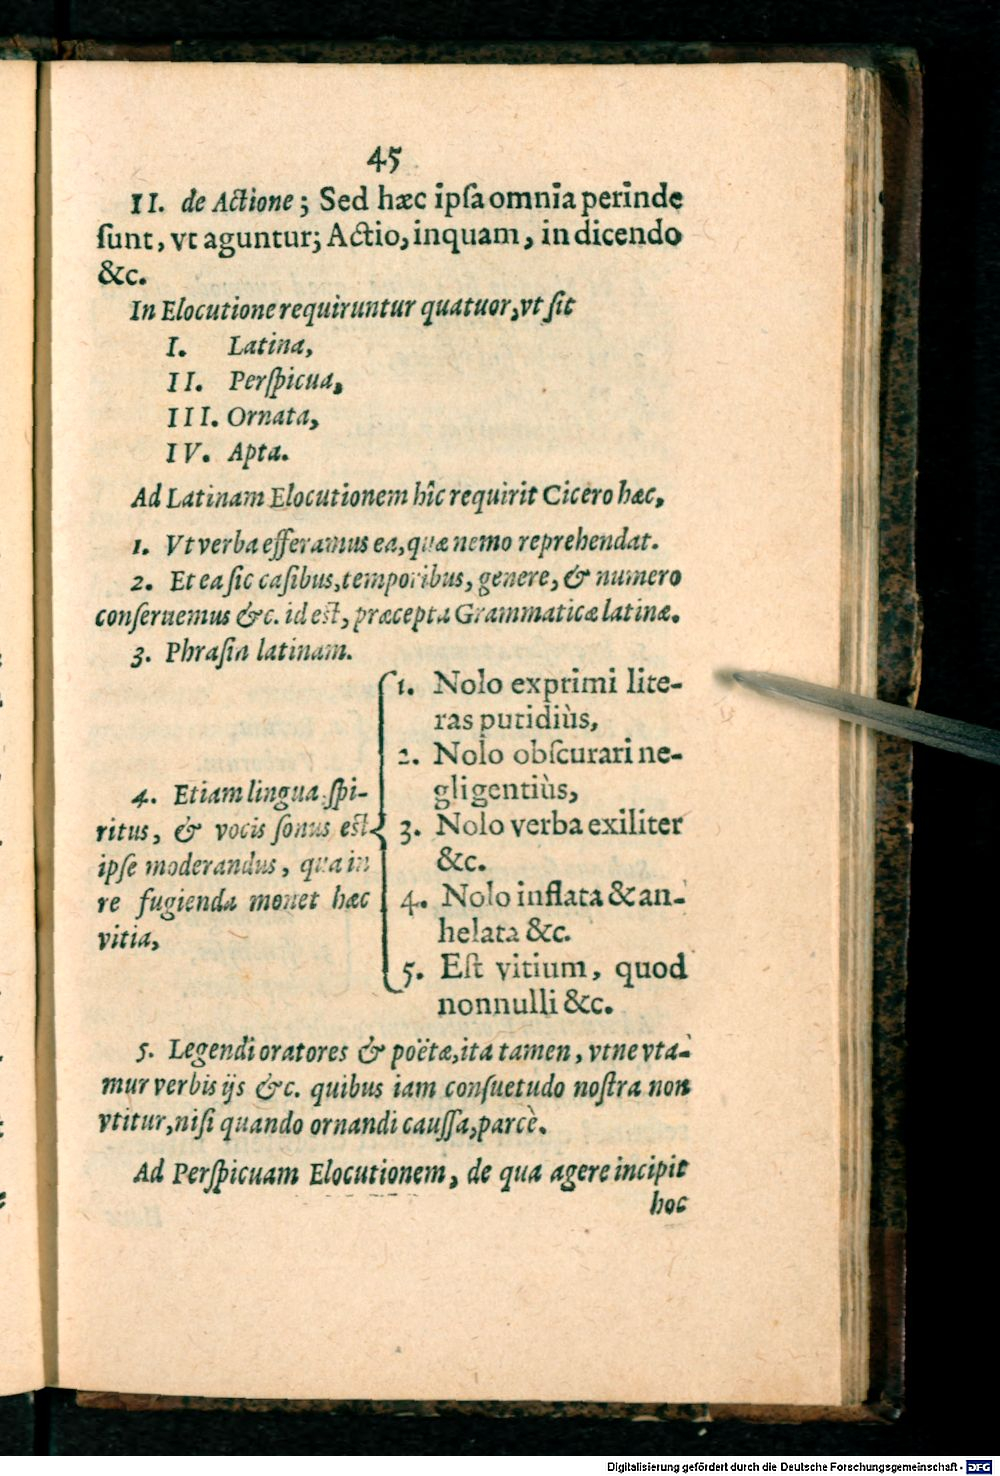 45
II. de Actione; Sed hæc ipſa omnia perinde
ſunt, vt aguntur; Actio, inquam, in dicendo
&c.
In Elocutione requiruntur quatuor, vt ſit
I. Latina,
II. Perſpicua,
III. Ornata,
IV. Apta.
Ad Latinam Elocutionem hîc requirit Cicero hæc,
1. Vt verba efferamus ea, quæ nemo reprehendat.
2. Et ea ſic caſibus, temporibus, genere, & numero
conſeruemus &c. id eſt, præcepta Grammaticæ latinæ.
3. Phraſin latinam.
4. Etiam lingua ſpi-
ritus, & vocis ſonus eſt
ipſe moderandus, qua in
re fugienda monet hæc
vitia,
1. Nolo exprimi lite-
ras putidiùs,
2. Nolo obſcurari ne-
gligentiùs,
3. Nolo verba exiliter
&c.
4. Nolo inflata & an-
helata &c.
5. Eſt vitium, quod
nonnulli &c.
5. Legendi oratores & poëtæ, ita tamen, vt ne vta-
mur verbis ijs &c. quibus iam conſuetudo noſtra non
vtitur, niſi quando ornandi cauſſa, parcè.
Ad Perſpicuam Elocutionem, de qua agere incipit
hoc
Digitalisierung gefördert durch die Deutsche Forschungsgemeinschaft - DFG